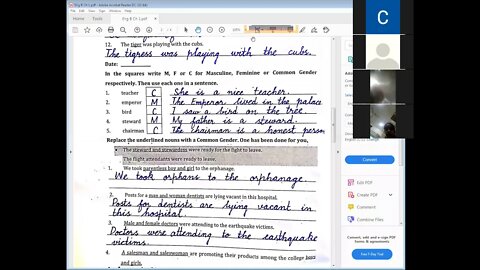 Eng R Ch 1.pdf - Adobe Acrobat Reader DC (32-bit)
File Edit View Sign Window Help
Home Tools
Sign In
Share
12. The tiger was playing with the cubs.
The tigress was playing with the cubs.
Date:
In the squares write M, F or C for Masculine, Feminine or Common Gender
respectively. Then use each one in a sentence.
1. teacher C She is a nice teacher.
2. emperor M The Emperor lived in the palace
3. bird C I saw a bird on the tree.
4. steward M My father is a steward.
5. chairman C The chairman is a honest person
Replace the underlined nouns with a Common Gender. One has been done for you.
The steward and stewardess were ready for the flight to leave.
The flight attendants were ready to leave.
1. We took parentless boy and girl to the orphanage.
We took orphans to the orphanage.
2. Posts for a man and woman dentists are lying vacant in this hospital.
Posts for dentists are lying vacant in
this hospital.
3. Male and female doctors were attending to the earthquake victims.
Doctors were attending to the earthquake
victims.
4. A salesman and saleswoman are promoting their products among the college boys
and girls.
Convert
Edit PDF
Create PDF
Comment
Combine Files
Convert, edit and e-sign PDF
forms & agreements
Free 7-Day Trial
C